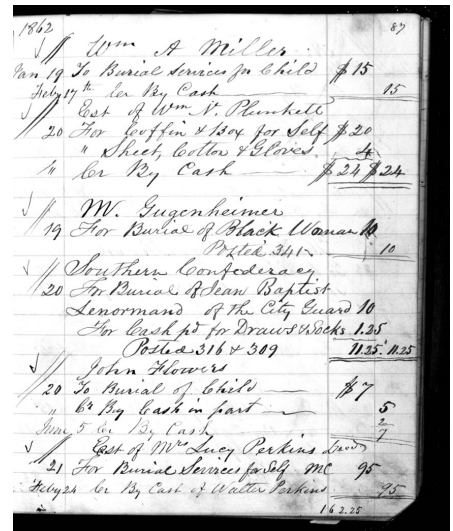 1862 87
// Wm A Miller
Jan 19 To Burial Services for Child $15
Feby 17th Cr By Cash 15
// Est of Wm N. Plunkett
20 For Coffin & Box for Self $20
" Sheet, Cotton & Gloves 4
" Cr By Cash $24 $24
// M. Gugenheimer
19 For Burial of Black Woman 10
Posted 341 10
// Southern Confederacy
20 For Burial of Jean Baptist
Lenormand of the City Guard 10
For Cash pd for Draws & Socks 1.25
Posted 316 & 309 11.25 11.25
// John Flowers
20 To Burial of Child $7
" Cr By Cash in part 5
June 5 Cr By Cash 2
7
// Est of Mrs Lucy Perkins Decd
21 For Burial Services for Self MC 95
Feby 24 Cr By Cash of Walter Perkins 95
162.25